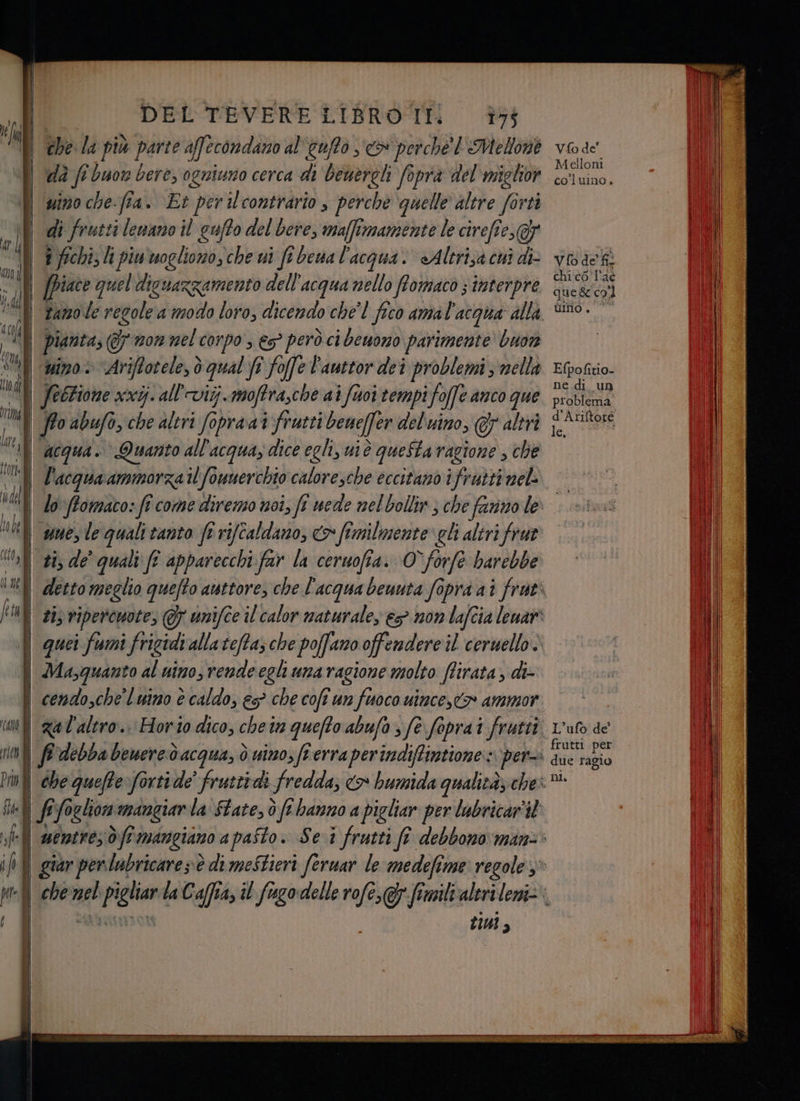 DEL TEVERE LIBRO II. 175
che la più parte assecondano al gusto, & perche'l Mellone
dà si buon bere, ogniuno cerca di beuergli sopra del miglior
uino che sia. Et per il contrario, perche quelle altre sorti
di frutti leuano il gusto del bere, massimamente le cirese, &
i fichi, li più uogliono, che ui si beua l'acqua. Altri, a cui di-
spiace quel diguazzamento dell'acqua nello stomaco; interpre
tano le regole a modo loro, dicendo che'l fico ama l'acqua alla
pianta, & non nel corpo, & però ci beuono parimente buon
uino. Aristotele, ò qual si fosse l'auttor dei problemi, nella
settione xxij. all'viij. mostra, che ai suoi tempi fosse anco que
sto abuso, che altri sopra ai frutti beuesser del uino, & altri
acqua. Quanto all'acqua, dice egli, ui è questa ragione, che
l'acqua ammorza il souuerchio calore, che eccitano i frutti nel-
lo stomaco: si come diremo noi, si uede nel bollir, che fanno le
uue, le quali tanto si riscaldano, & similmente gli altri frut
ti, de' quali si apparecchi far la ceruosia. O forse harebbe
detto meglio questo auttore, che l'acqua beuuta sopra ai frut
ti, ripercuote, & unisce il calor naturale, & non lascia leuar
quei fumi frigidi alla testa, che possano offendere il ceruello.
Ma, quanto al uino, rende egli una ragione molto stirata, di-
cendo, che'l uino è caldo, & che cosi un fuoco uince, & ammor
za l'altro. Hor io dico, che in questo abuso, se sopra i frutti
si debba beuere ò acqua, ò uino, si erra per indistintione: per-
che queste sorti de' frutti di fredda, & humida qualità, che
si soglion mangiar la State, ò si hanno a pigliar per lubricar il
uentre, ò si mangiano a pasto. Se i frutti si debbono man-
giar per lubricare, è di mestieri seruar le medesime regole,
che nel pigliar la Cassia, il sugo delle rose, & simili altri leni-
tiui,
Vso de'
Melloni
co'l uino.
Vso de' fi-
chi cō l'ac
que & co'l
uino.
Espositio-
ne di un
problema
d'Aristote
le,
L'uso de'
frutti per
due ragio
ni.